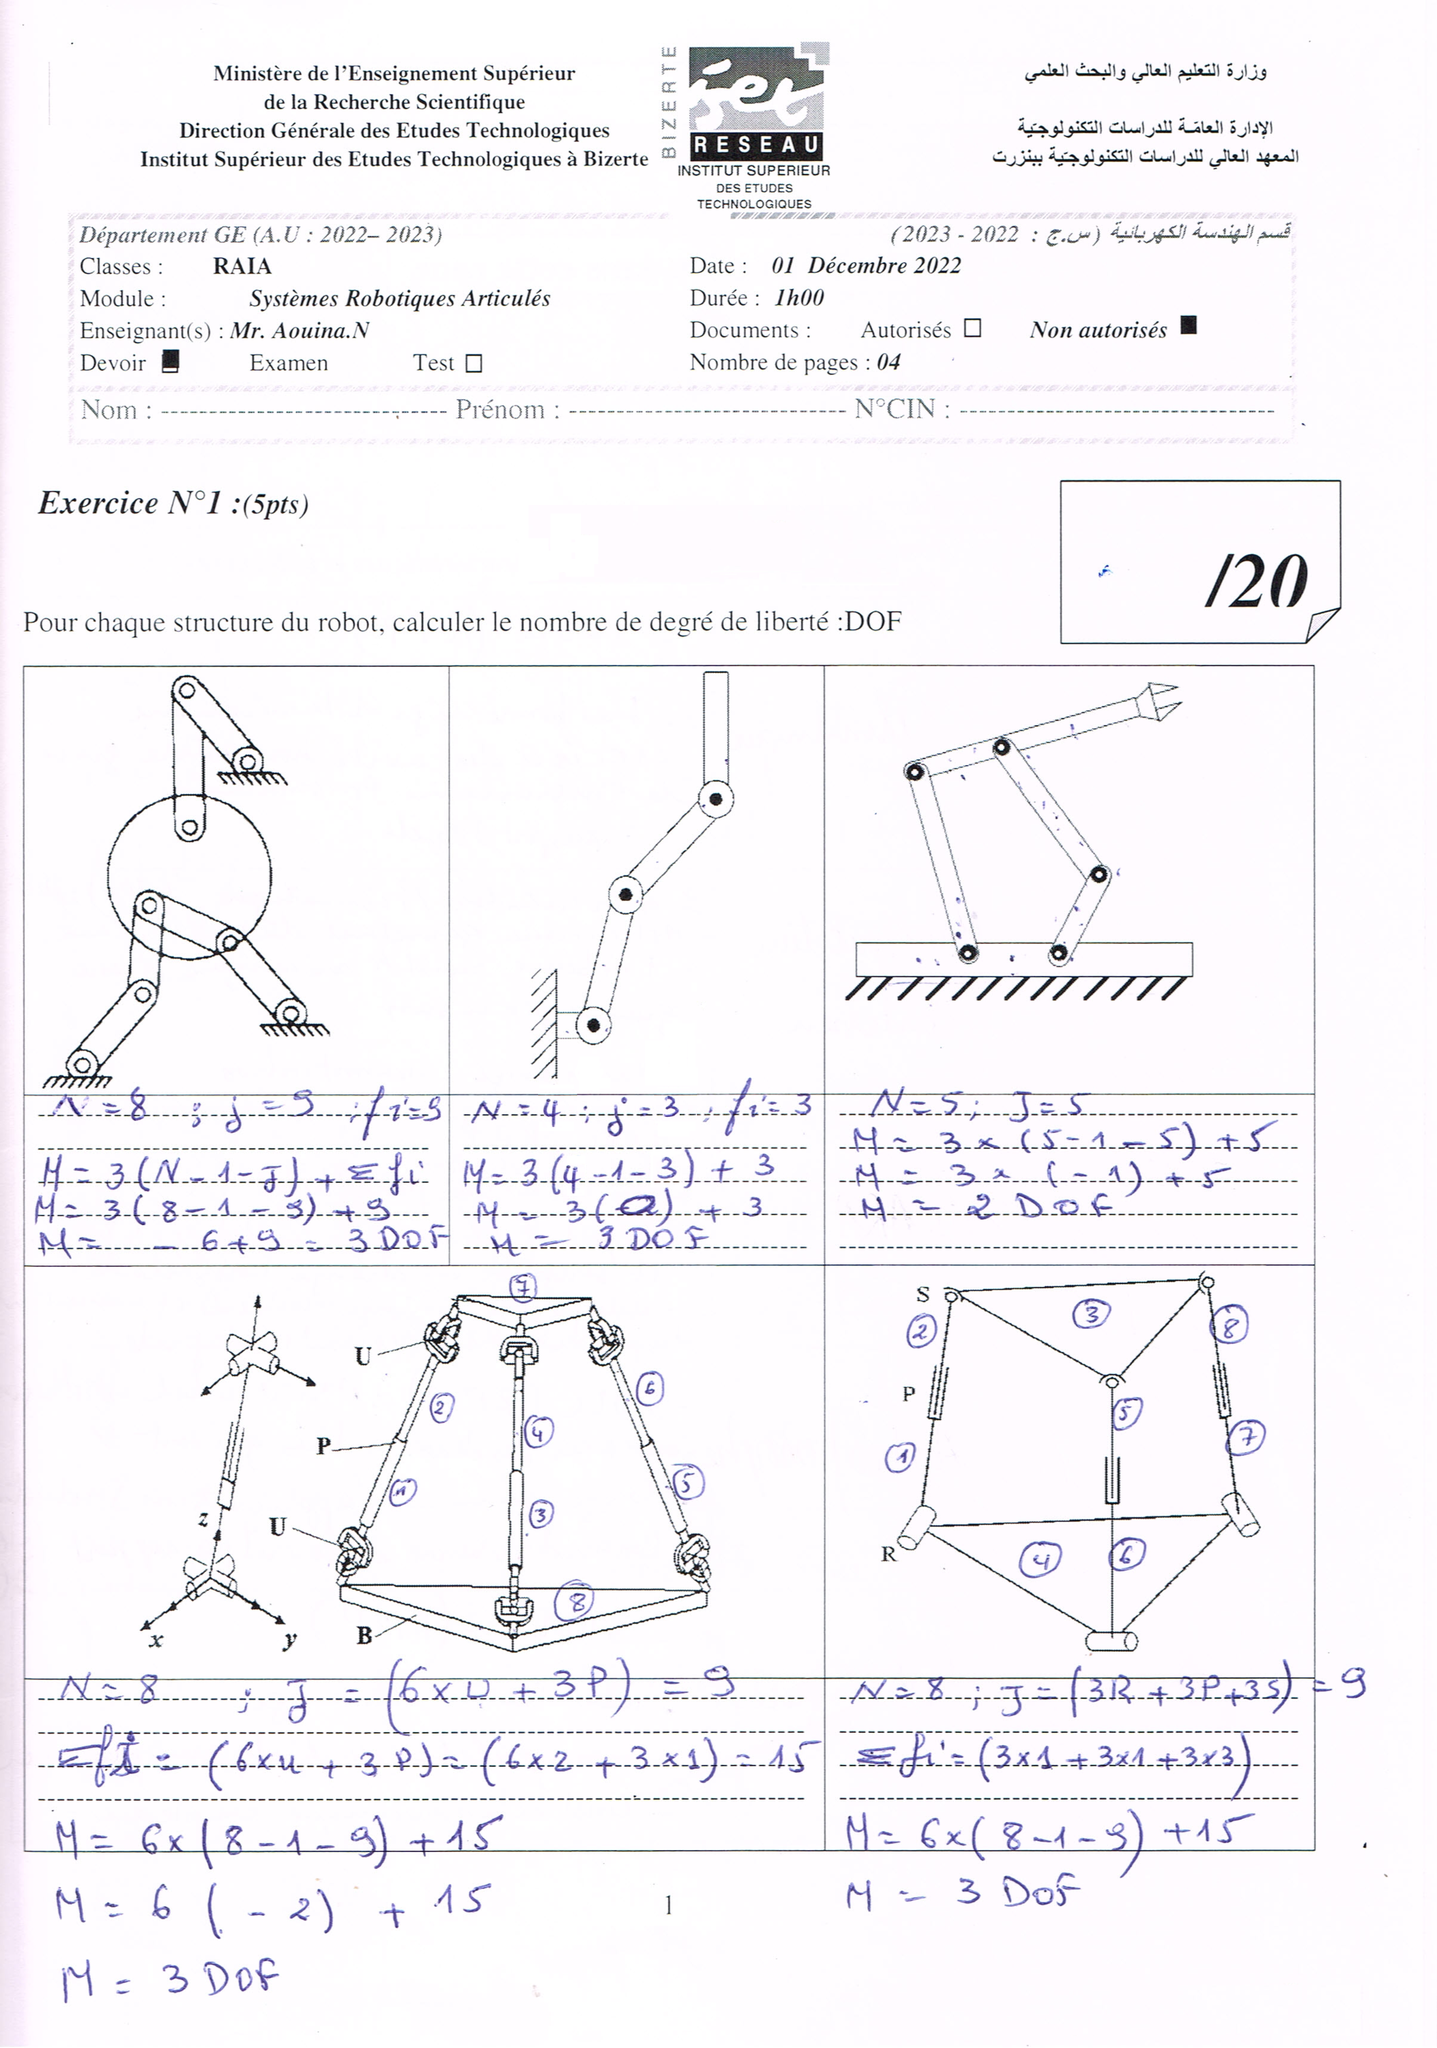 Ministère de l'Enseignement Supérieur
de la Recherche Scientifique
Direction Générale des Etudes Technologiques
Institut Supérieur des Etudes Technologiques à Bizerte
BIZERTE
iset
RESEAU
INSTITUT SUPERIEUR
DES ETUDES
TECHNOLOGIQUES
وزارة التعليم العالي والبحث العلمي
الإدارة العامّة للدراسات التكنولوجيّة
المعهد العالي للدراسات التكنولوجيّة ببنزرت
Département GE (A.U : 2022– 2023)
قسم الهندسة الكهربائية (س.ج : 2022 - 2023)
Classes : RAIA
Date : 01 Décembre 2022
Module : Systèmes Robotiques Articulés
Durée : 1h00
Enseignant(s) : Mr. Aouina.N
Documents : Autorisés ☐ Non autorisés ■
Devoir ■ Examen Test ☐
Nombre de pages : 04
Nom : ------------------------------ Prénom : ----------------------------- N°CIN : ---------------------------------
Exercice N°1 :(5pts)
/20
Pour chaque structure du robot, calculer le nombre de degré de liberté :DOF
N = 8 ; j = 9 ; fi = 9
M = 3(N - 1 - J) + Σ fi
M = 3(8 - 1 - 9) + 9
M = - 6 + 9 = 3 DOF
N = 4 ; j = 3 ; fi = 3
M = 3(4 - 1 - 3) + 3
M = 3(0) + 3
M = 3 DOF
N = 5 ; J = 5
M = 3 × (5 - 1 - 5) + 5
M = 3 × (-1) + 5
M = 2 DOF
7
U
2
6
P
4
1
5
3
z
U
8
B
x
y
S
3
2
8
P
5
1
7
R
4
6
N = 8 ; J = (6×U + 3P) = 9
Σfi = (6×U + 3P) = (6×2 + 3×1) = 15
M = 6×(8 - 1 - 9) + 15
M = 6 (-2) + 15
M = 3 DOF
N = 8 ; J = (3R + 3P + 3S) = 9
Σfi = (3×1 + 3×1 + 3×3)
M = 6×(8 - 1 - 9) + 15
M = 3 DOF
1